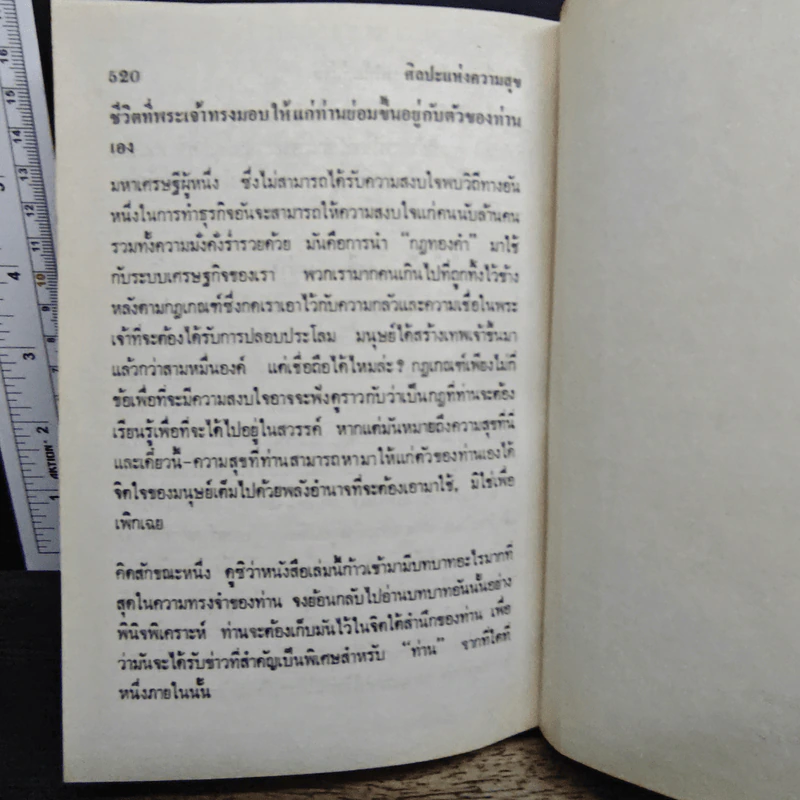 520 ศิลปะแห่งความสุข
ชีวิตที่พระเจ้าทรงมอบให้แก่ท่านย่อมขึ้นอยู่กับตัวของท่าน
เอง
มหาเศรษฐีผู้หนึ่ง ซึ่งไม่สามารถได้รับความสงบใจพบวิถีทางอัน
หนึ่งในการทำธุรกิจอันจะสามารถให้ความสงบใจแก่คนนับล้านคน
รวมทั้งความมั่งคั่งร่ำรวยด้วย มันคือการนำ "กฎทองคำ" มาใช้
กับระบบเศรษฐกิจของเรา พวกเรามากคนเกินไปที่ถูกทิ้งไว้ข้าง
หลังตามกฎเกณฑ์ซึ่งกดเราเอาไว้กับความกลัวและความเชื่อในพระ
เจ้าที่จะต้องได้รับการปลอบประโลม มนุษย์ได้สร้างเทพเจ้าขึ้นมา
แล้วกว่าสามหมื่นองค์ แต่เชื่อถือได้ไหมล่ะ? กฎเกณฑ์เพียงไม่กี่
ข้อเพื่อที่จะมีความสงบใจอาจจะฟังดูราวกับว่าเป็นกฎที่ท่านจะต้อง
เรียนรู้เพื่อที่จะได้ไปอยู่ในสวรรค์ หากแต่มันหมายถึงความสุขที่นี่
และเดี๋ยวนี้-ความสุขที่ท่านสามารถหามาให้แก่ตัวของท่านเองได้
จิตใจของมนุษย์เต็มไปด้วยพลังอำนาจที่จะต้องเอามาใช้, มิใช่เพื่อ
เพิกเฉย
คิดสักขณะหนึ่ง ดูซิว่าหนังสือเล่มนี้ก้าวเข้ามามีบทบาทอะไรมากที่
สุดในความทรงจำของท่าน จงย้อนกลับไปอ่านบทบาทอันนั้นอย่าง
พินิจพิเคราะห์ ท่านจะต้องเก็บมันไว้ในจิตใต้สำนึกของท่าน เพื่อ
ว่ามันจะได้รับข่าวที่สำคัญเป็นพิเศษสำหรับ "ท่าน" จากที่ใดที่
หนึ่งภายในนั้น
16
15
14
13
12
11
10
9
8
7
6
5
4
3
2
1